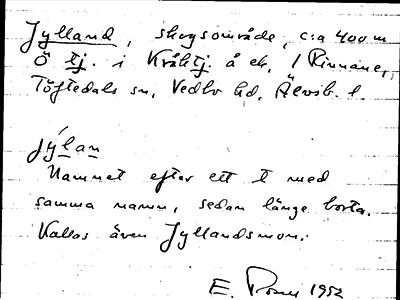 Jylland, skogsområde, c:a 400 m
Ö tj. i Kråktj. å ek. 1 Rinnane,
Töftedals sn, Vedbo hd, Älvsb. l.
Jýlan
Namnet efter ett t med
samma namn, sedan länge borta.
Kallas även Jyllandsmon.
E. 1952